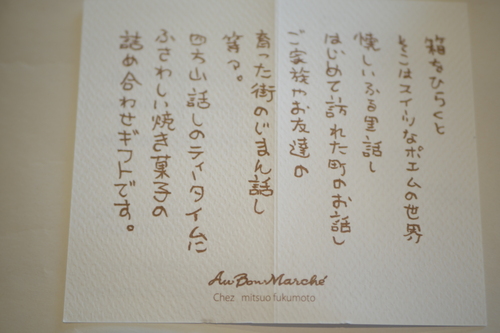 箱をひらくと
そこはスイーツなポエムの世界
懐しいふる里話し
はじめて訪れた町のお話し
ご家族やお友達の
育った街のじまん話し
等々。
四方山話しのティータイムに
ふさわしい焼き菓子の
詰め合わせギフトです。
Au Bon Marché
Chez mitsuo fukumoto